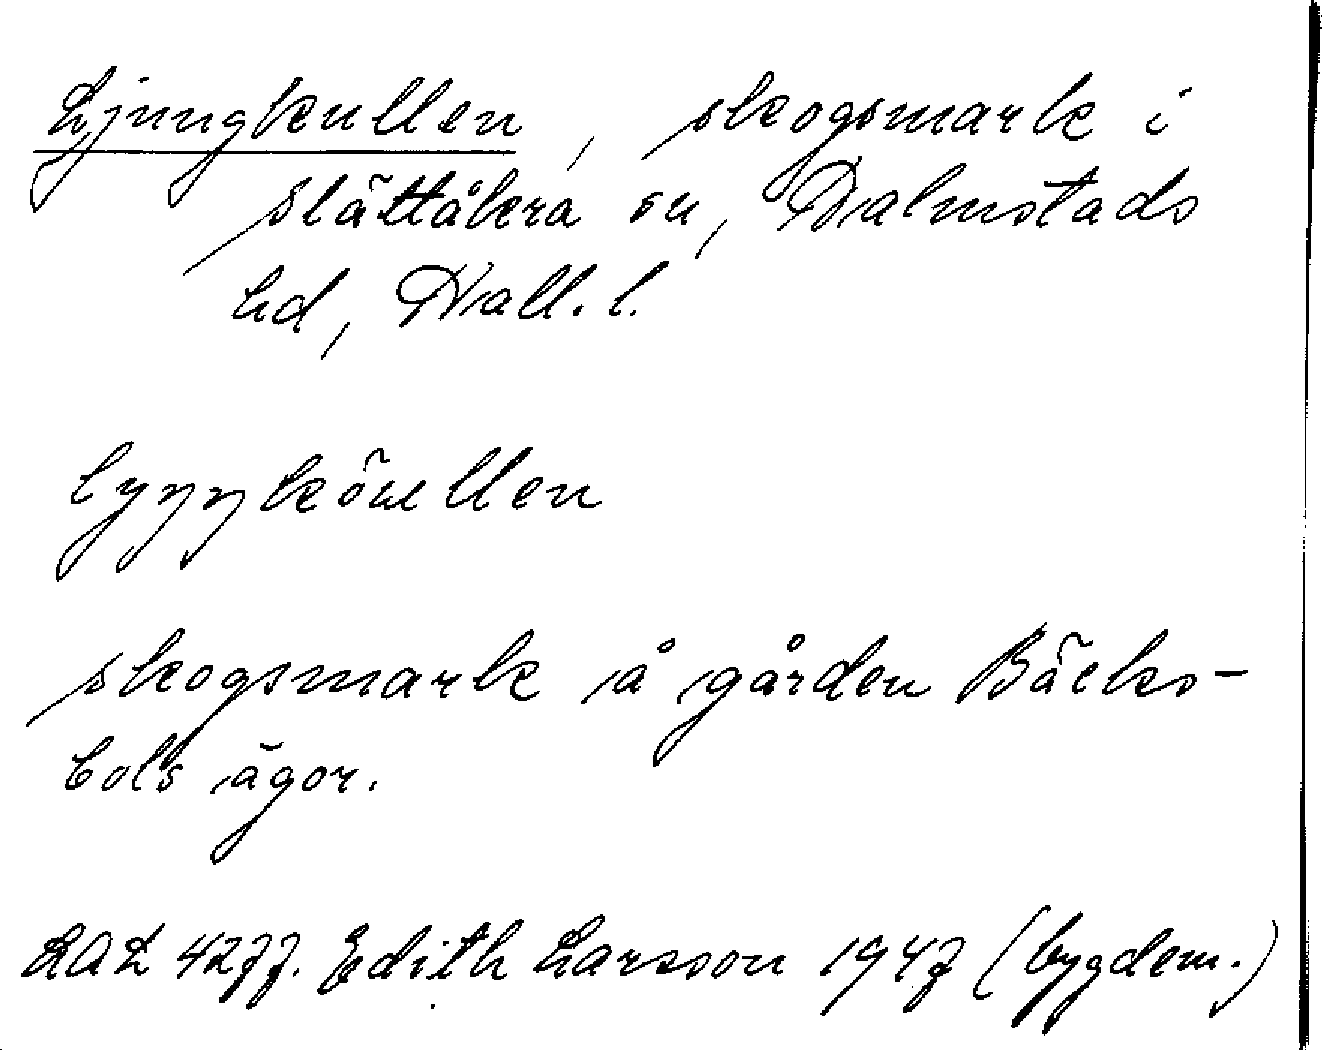 Ljungkullen, skogsmark i
Slättåkra sn, Halmstads
hd, Hall. l.
skogsmark å gården Bäcks-
bols ägor.
LAL 4277. Edith Larsson 1947 (bygdem.)